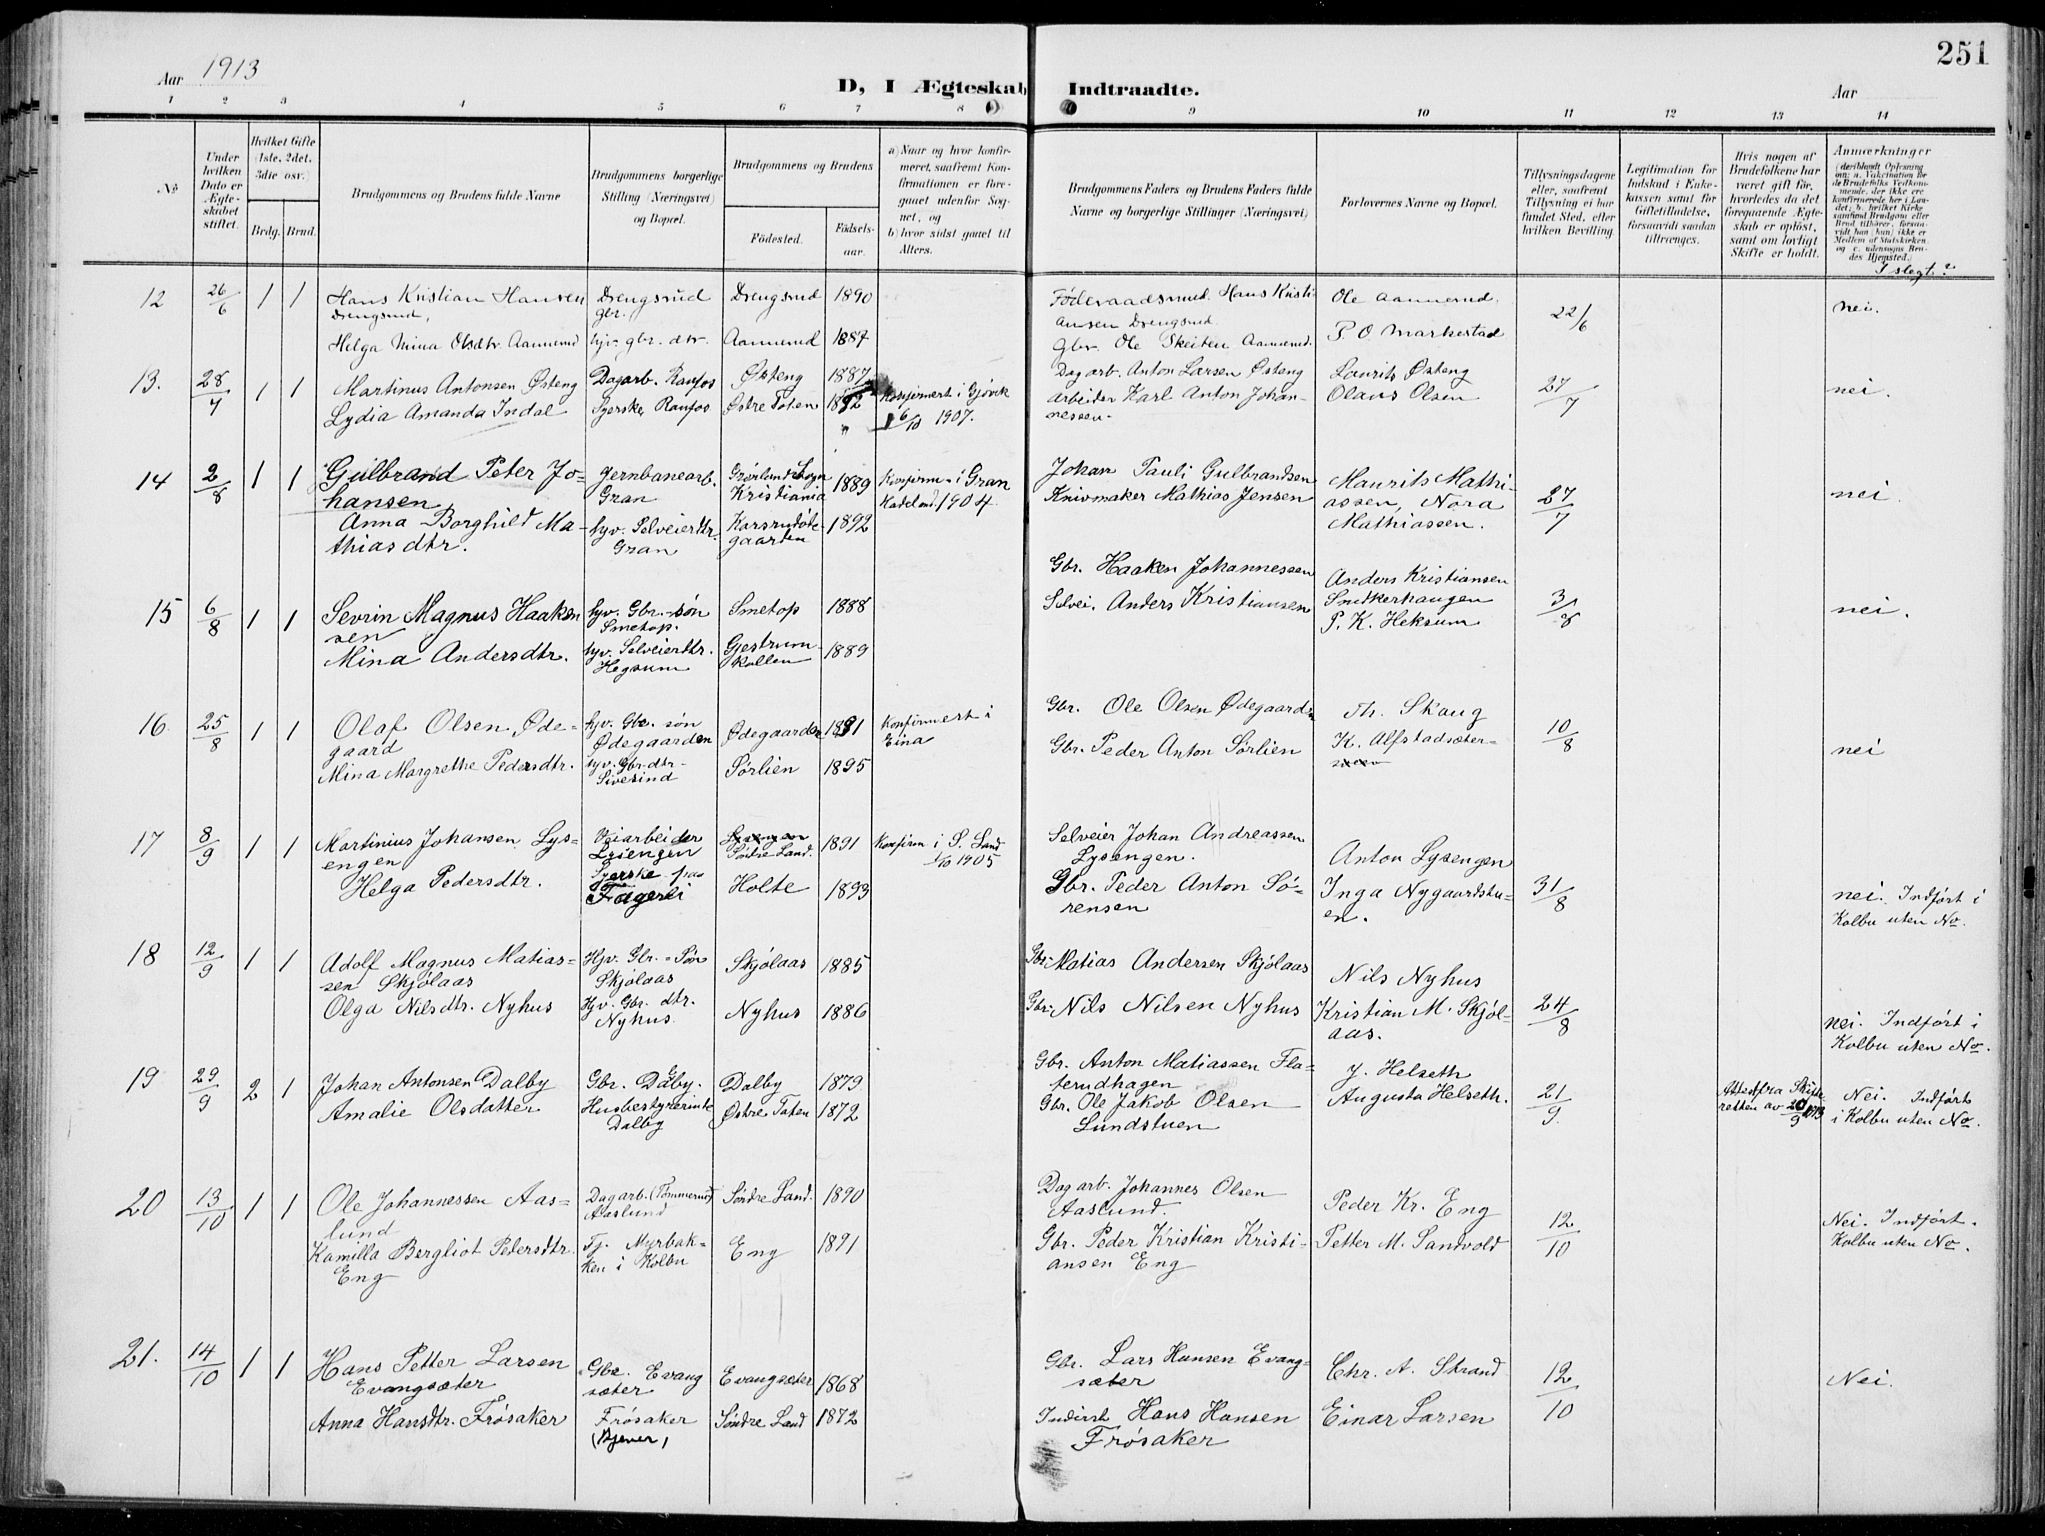 251
Aar 1913
D, I Ægteskab Indtraadte.
Aar
1 2 3 4 5 6 7 8 9 10 11 12 13 14
No.
Under hvilken Dato er Ægteskabet stiftet.
Hvilket Gifte (1ste, 2det, 3die osv.)
Brdg. Brud.
Brudgommens og Brudens fulde Navne
Brudgommens borgerlige Stilling (Næringsvei) og Bopæl.
Brudgommens og Brudens
Fødested.
Fødselsaar.
a) Naar og hvor konfirmeret, saafremt Konfirmationen er foregaaet udenfor Sognet, og
b) hvor sidst gaaet til Alters.
Brudgommens Faders og Brudens Faders fulde Navne og borgerlige Stillinger (Næringsvei)
Forlovernes Navne og Bopæl.
Tillysningsdagene eller, saafremt Tillysning ei har fundet Sted, efter hvilken Bevilling.
Legitimation for Indskud i Enkekassen samt for Giftetilladelse, forsaavidt saadan tiltrænges.
Hvis nogen af Brudefolkene har været gift før, hvorledes da det foregaaende Ægteskab er opløst, samt om lovligt Skifte er holdt.
Anmærkninger
I slegt?
12 26/6 1 1 Hans Kristian Hansen Drengsrud Drengsrud 1890 Føderaadsmd. Hans Kristi- Ole Aannerud.
Drengsrud, gbr. ansen Drengsrud. 22/6 nei.
Helga Mina Olsdtr. Aannerud hjv. gbr. dtr. Aannerud 1887 Gbr. Ole Skeiten Aannerud. P. O Markestad
13. 28/7 1 1 Martinus Antonsen Østeng Dagarb. Raufos Østeng 1887 Dagarb. Anton Larsen Østeng Laurits Østeng 27/7 nei.
Lydia Amanda Indal Syerske, Raufos Østre Toten 1892 Konfirmert i Gjøvik arbeider Karl Anton Johan- Olaus Olsen
6/10 1907. nessen.
14 2/8 1 1 Gulbrand Peter Jo- Jernbanearb. Grønland Sogn 1889 Konfirm. i Gran Johan Pauli Gulbrandsen Maurits Mathi-
hansen Gran Kristiania Hadeland 1904. Knivmaker Mathias Jensen assen, Nora 27/7 nei
Anna Borghild Ma- hjv. Selveierdtr. Karsrudøde- 1892 Mathiassen.
thiasdtr. Gran gaarden
15 6/8 1 1 Sevrin Magnus Haaken hjv. Gbr.-søn Smetop 1888 Gbr. Haaken Johannessen Anders Kristiansen
sen Smetop. Selvei. Anders Kristiansen Snedkerhaugen 3/8 nei.
Mina Andersdtr. hjv. Selveierdtr. Gjestrum- 1889 P. K. Heksum
Hegsum kollen
16 25/8 1 1 Olaf Olsen Øde- hjv. Gbr. søn Ødegaarden 1891 Konfirmert i Gbr. Ole Olsen Ødegaarden Th. Skaug 10/8
gaard Ødegaarden Eina
Mina Margrethe Pedersdtr. hjv. Gbr.dtr- Sørlien 1895 Gbr. Peder Anton Sørlien K. Alfstadsæter- nei
Sivesind
17 8/9 1 1 Martinius Johansen Lys- Veiarbeider Søndre Land. 1891 Konfirm i S. Land Selveier Johan Andreassen
engen Lysengen 1/10 1905 Lysengen. Anton Lysengen
Helga Pedersdtr. Syerske fra Holte 1893 Gbr. Peder Anton Sø- Inga Nygaardstu- 31/8 nei. Indført i
Fagerli rensen en. Kolbu uten No.
18 12/9 1 1 Adolf Magnus Matias- Hjv. Gbr.-Søn Skjølaas 1885 Gbr. Matias Andersen Skjølaas Nils Nyhus
sen Skjølaas Skjølaas
Olga Nilsdtr. Nyhus Hjv. Gbr. dtr. Nyhus 1886 Gbr. Nils Nilsen Nyhus Kristian M. Skjøl- 24/8 nei. Indført i
Nyhus. aas. Kolbu uten No.
19 29/9 2 1 Johan Antonsen Dalby Gbr. Dalby. Dalby 1879 Gbr. Anton Matiassen Fla- J. Helseth
terudhagen
Amalie Olsdatter Husbestyrerinde Østre Toten 1872 Gbr. Ole Jakob Olsen Augusta Helseth. 21/9. Attest fra Skifte Nei. Indført
Dalby Lundstuen retten av 20/9 1913 i Kolbu uten No.
20 13/10 1 1 Ole Johannessen Aas- Dagarb. (Tømmermd) Søndre Land. 1890 Dagarb. Johannes Olsen Peder Kr. Eng
lund Aaslund Aaslund. 12/10 Nei. Indført.
Kamilla Bergliot Pedersdtr. Tj. Myrbak- Eng 1891 Gbr. Peder Kristian Kristi- Petter M. Sandvold Kolbu uten No.
Eng ken i Kolbu ansen Eng
21. 14/10 1 1 Hans Petter Larsen Gbr. Evang Evangsæter 1868 Gbr. Lars Hansen Evang- Chr. A. Strand 12/10 Nei.
Evangsæter sæter sæter
Anna Hansdtr. Frøsaker Frøsaker Søndre Land 1872 Inderst Hans Hansen Einar Larsen
Frøsaker